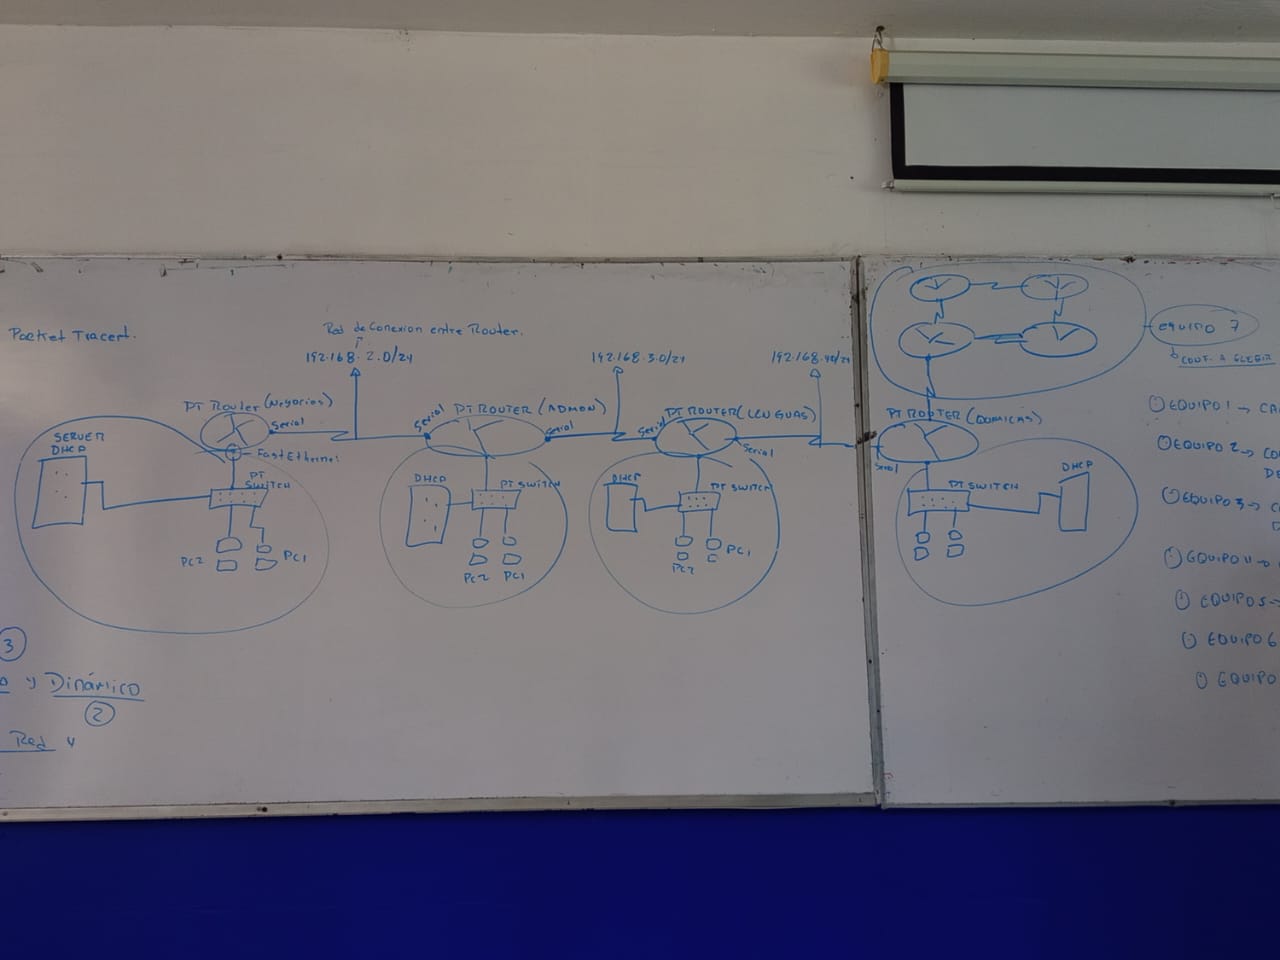 Packet Tracert.
Red de Conexion entre Router.
192.168.2.0/24
192.168.3.0/24
192.168.4.0/24
equipo 7
CONF. A ELEGIR
PT Router (Negocios)
Serial
FastEthernet
SERVER
DHCP
PT
SWITCH
PC2
PC1
Serial
PT ROUTER (ADMON)
Serial
DHCP
PT SWITCH
PC2
PC1
Serial
PT ROUTER (LENGUAS)
Serial
DHCP
PT SWITCH
PC2
PC1
PT ROUTER
Serial
PT SWITCH
DHCP
① EQUIPO 1 → CA
① EQUIPO 2 → CO
DE
① EQUIPO 3 → C
① EQUIPO 4 →
① EQUIPO 5 →
① EQUIPO 6
① EQUIPO
3
y Dinámico
2
Red y